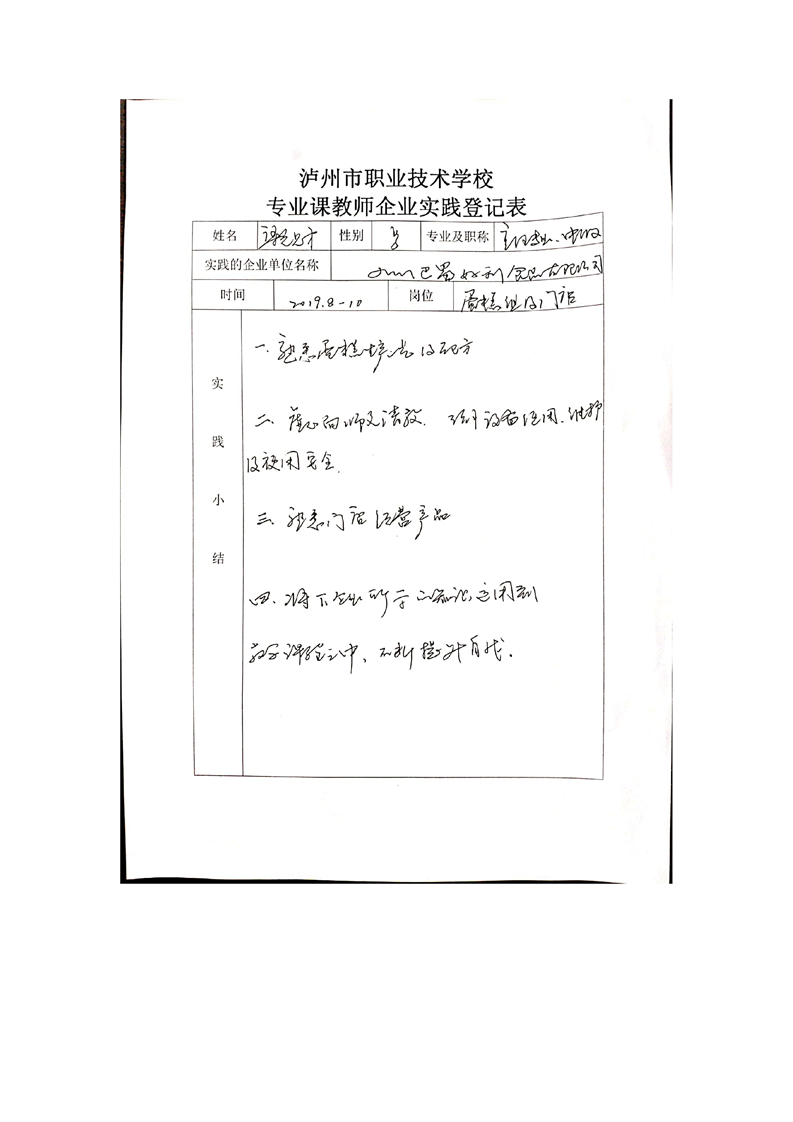 泸州市职业技术学校
专业课教师企业实践登记表
姓名 性别 男 专业及职称 中级
实践的企业单位名称 四川巴蜀好利食品有限公司
时间 2019.8-10 岗位 蛋糕组及门店
实践小结
一、熟悉蛋糕烘焙及配方
二、虚心向师父请教 设备使用、维护
及使用安全
三、熟悉门店运营产品
四、将下企业所学的知识运用到
教学课程之中、不断提升自我.